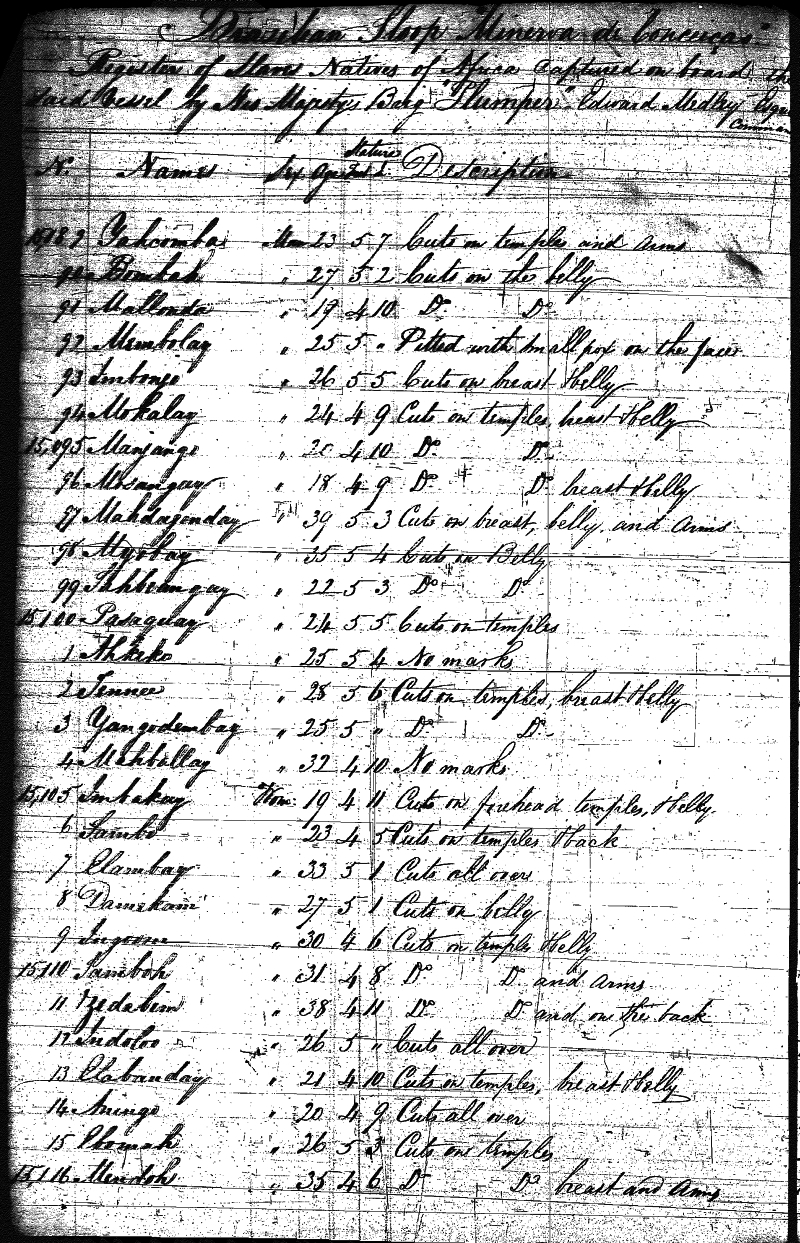 Brazilian Sloop "Minerva de Conceicas"
Register of Slaves Natives of Africa captured on board the
said Vessel by His Majestys Brig "Plumper" Edward Medley Esqr
Comman
No. Names Sex Age Stature Description
9 Yahcomba Man 23 5 7 Cuts on temples and arms
Bombah " 27 5 2 Cuts on the belly
91 Mallonda " 19 4 10 Do Do
92 Membolay " 25 5 " Pitted with small pox on the face
93 Imbongo " 26 5 5 Cuts on breast & belly
94 Mokalay " 24 4 9 Cuts on temples, breast & belly
15,095 Manjango " 4 10 Do Do
96 Mosangay " 18 4 9 Do Do breast & belly
97 Mahdagonday " 39 5 3 Cuts on breast, belly, and arms
98 Myobay " 35 5 4 Cuts on Belly
99 " 22 5 3 Do Do
15,100 Pasaguay " 24 5 5 Cuts on temples
1 Ahkeko " 25 5 4 No marks
2 Tennee " 28 5 6 Cuts on temples, breast & belly
3 Yangodembay " 25 5 " Do Do
4 Mahbellay " 32 4 10 No marks
15,105 Imbakay Wom. 19 4 11 Cuts on forehead temples, & belly.
6 Sambo " 23 4 5 Cuts on temples & back
7 Clambay " 33 5 1 Cuts all over
8 Damekam " 27 5 1 Cuts on belly
9 Ingoome " 30 4 6 Cuts on temple & belly
15,110 Samboh " 31 4 8 Do Do and arms
11 " 38 4 11 Do Do and on the back
12 Indoloo " 26 5 " Cuts all over
13 Clabanday " 21 4 10 Cuts on temples, breast & belly
14 Aningo " 20 4 9 Cuts all over
15 " 26 5 3 Cuts on temples
15,116 Mendoh " 35 4 6 Do Do breast and Arms